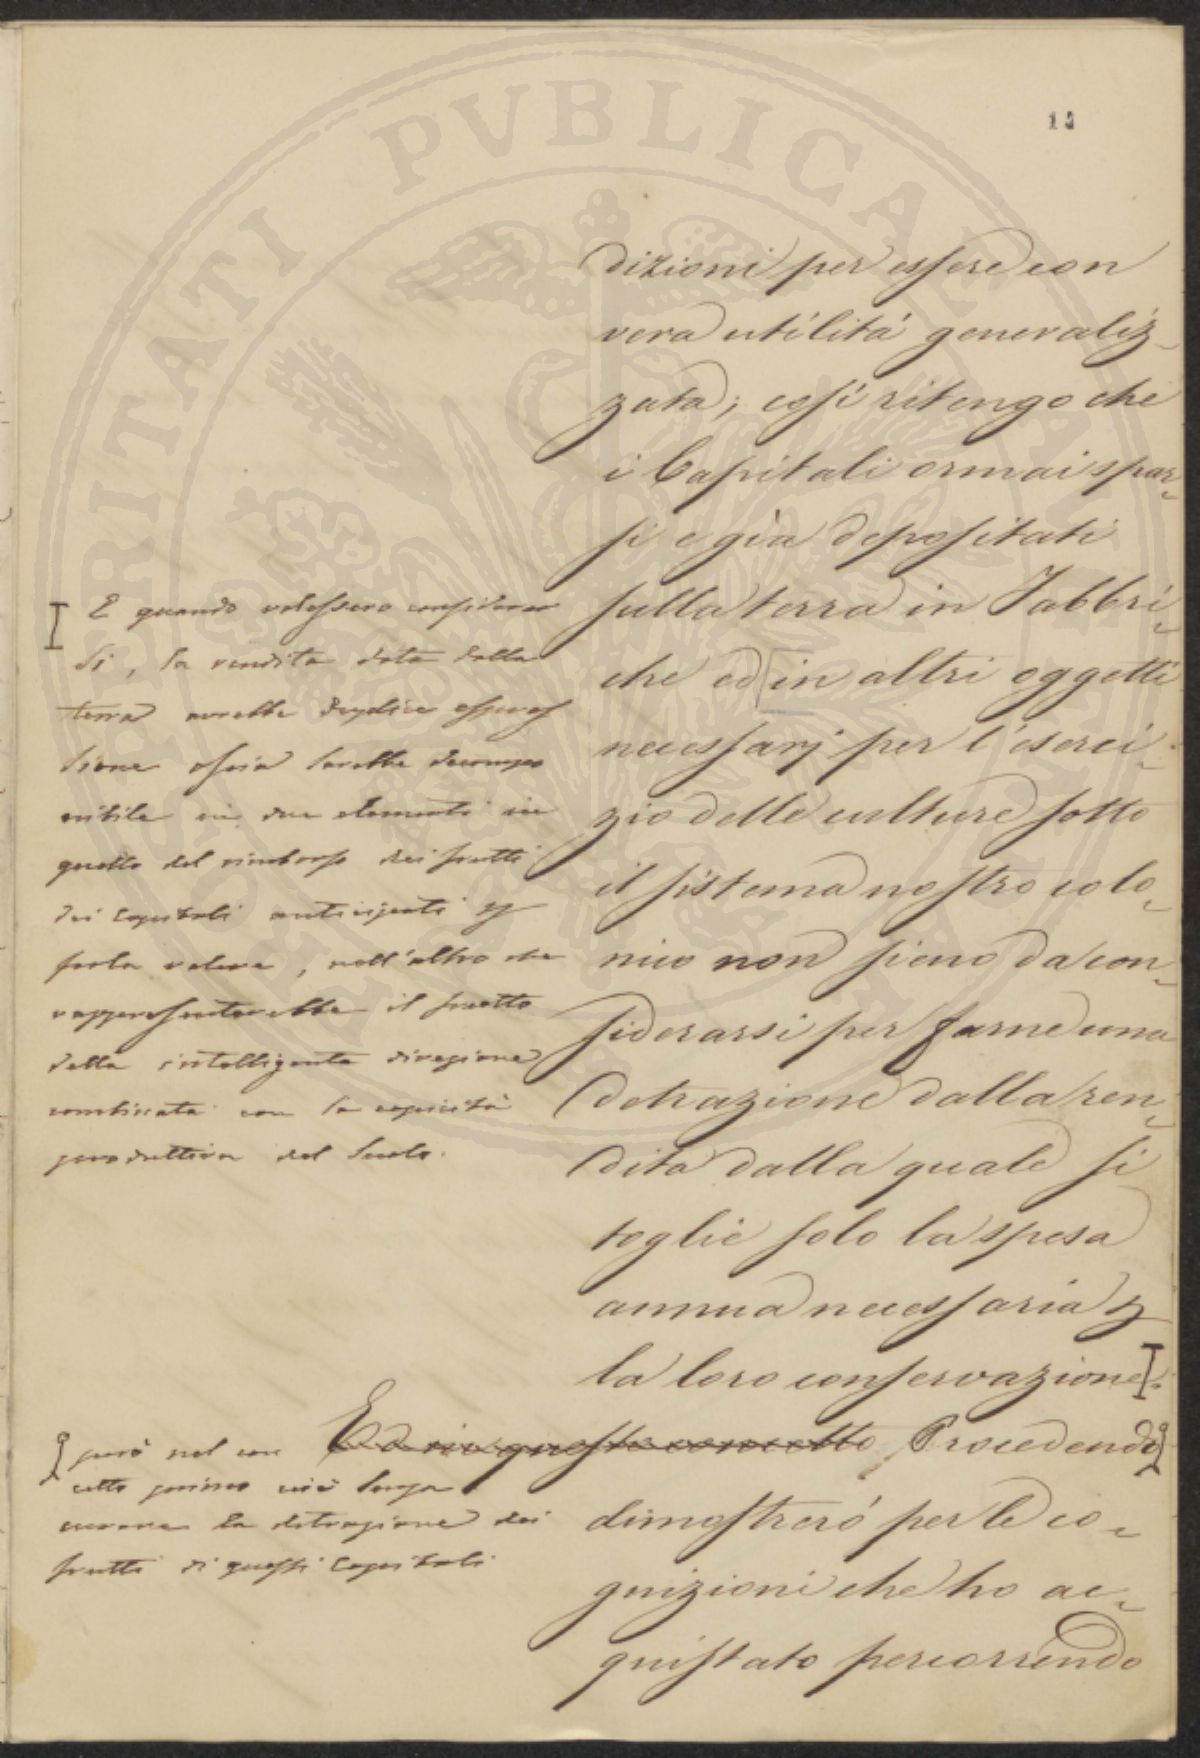 14
dizioni per essere con
vera utilità generaliz-
zata; così ritengo che
i Capitali ormai spar-
si e già depositati
sulla terra in Fabbri-
che ed in altri oggetti
necessarj per l'eserci-
zio delle culture sotto
il sistema nostro colo-
nico non sieno da con-
siderarsi per farne una
detrazione dalla ren-
dita dalla quale si
toglie solo la spesa
annua necessaria p
la loro conservazione.
Ed in questo concetto Procedendo
dimostrerò per le co-
gnizioni che ho ac-
quistato percorrendo
E quando volessero considerar
si, la rendita data dalla
terra avrebbe duplice espres
sione ossia sarebbe decompo
nibile in due elementi in
quello del rimborso dei frutti
dei capitali anticipati
valore, nell'altro che
rappresenterebbe il frutto
della intelligente direzione
combinata con la capacità
produttiva del suolo.
però nel con
cetto primo cioè senza
la detrazione dei
frutti di questi capitali
PVBLICAE